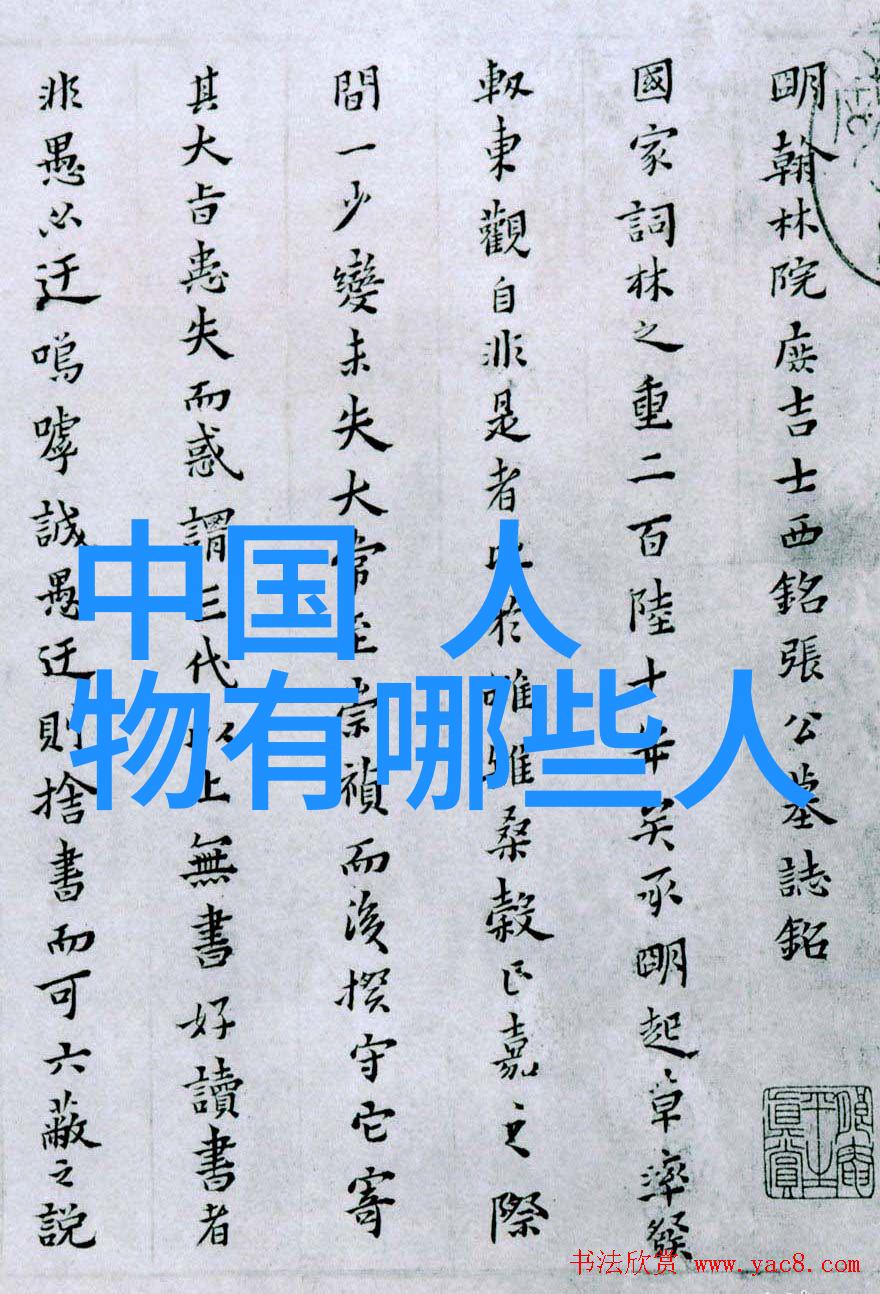 明翰林院庶吉士西銘張公墓誌銘
國家詞林之重二百陸十年矣承明起草淥
東觀自非是者比於雄雉桑穀正嘉之際
間一少變未失大常至崇禎而後揆守它寄
其大旨悫失而惑謂三代以上無書好讀書者
非愚必迂嗚嘑誠愚迂則捨書而可六蔽之説
中国 人
物有哪些人
真賞
书法欣赏 www.yac8.com